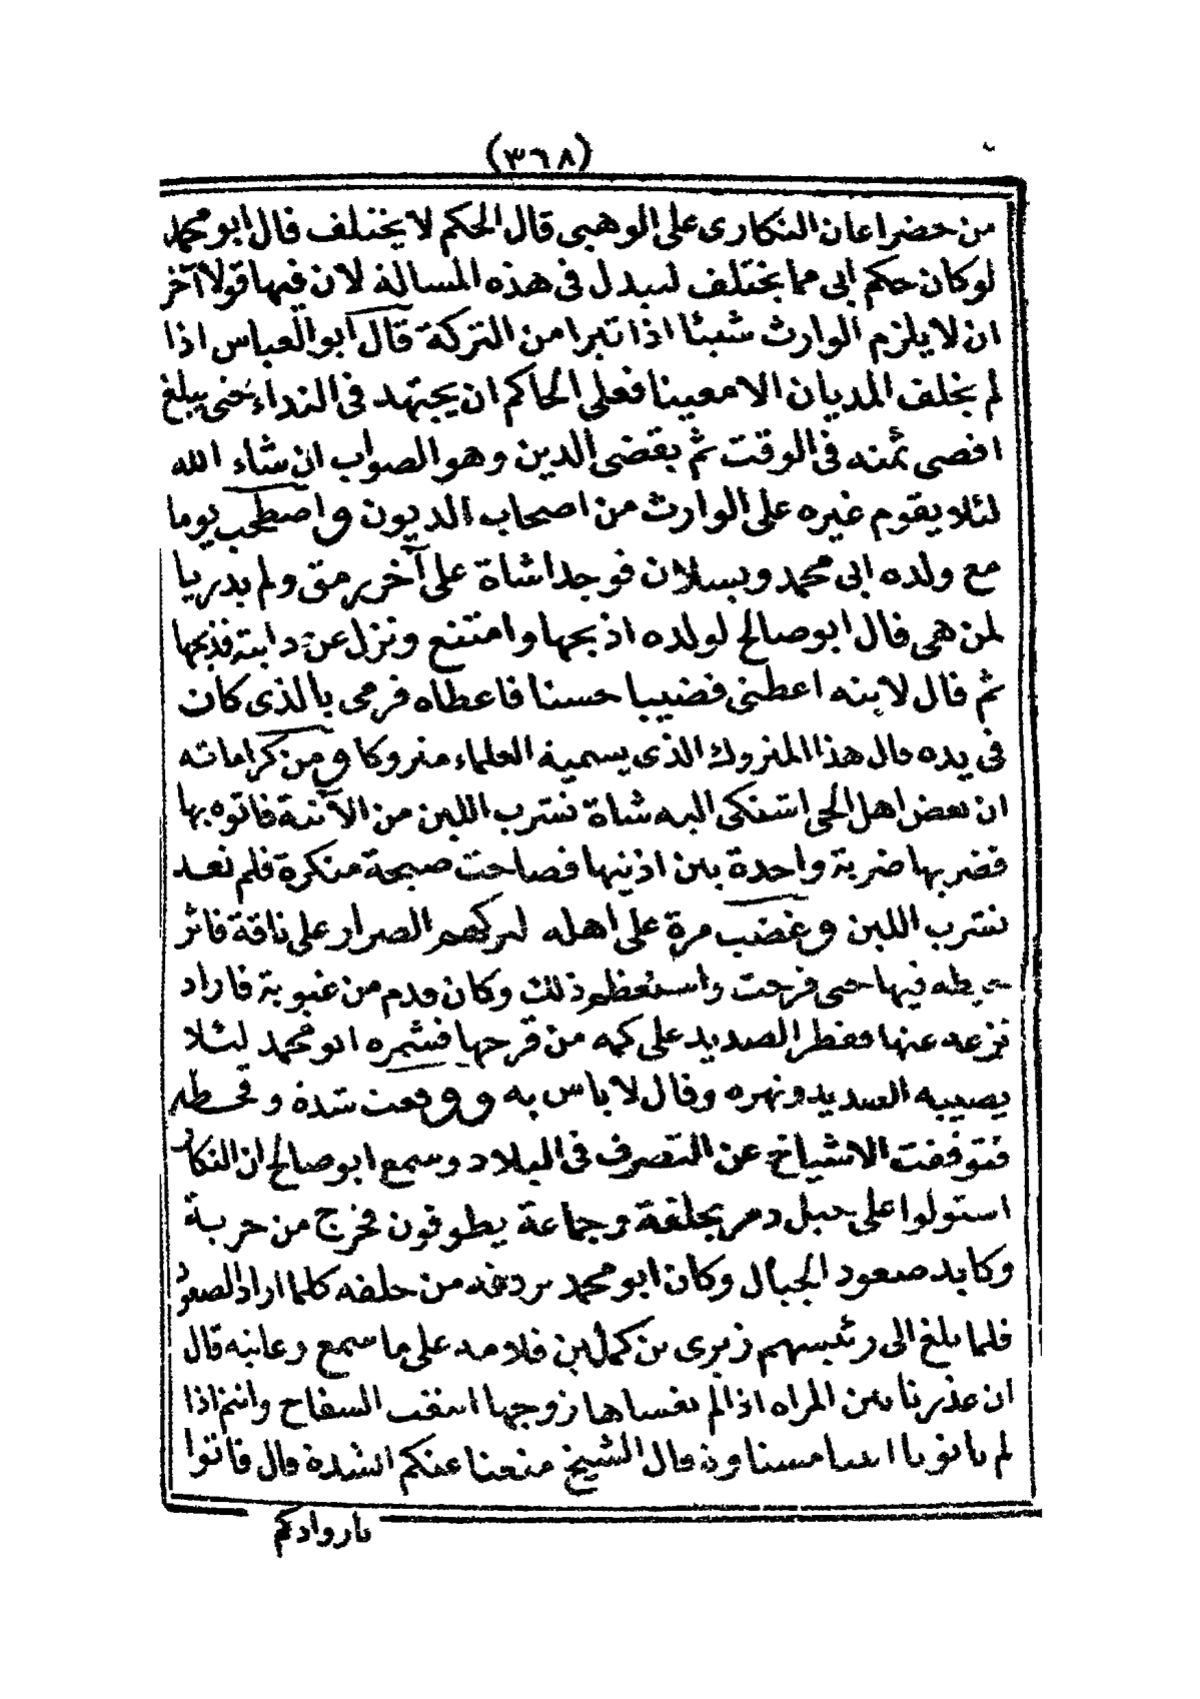 (٣٦٨)
من حضر اعان النكارى على الوهبى قال الحكم لا يختلف قال ابو محمد
لو كان حكم ابى مما يختلف لتبدل فى هذه المسالة لان فيها قولا آخر
ان لا يلزم الوارث شيئا اذا تبرا من التركة قال ابو العباس اذا
لم يخلف المديان الا معينا فعلى الحاكم ان يجتهد فى النداء حتى يبلغ
اقصى ثمنه فى الوقت ثم يقضى الدين وهو الصواب ان شاء الله
لئلا يقوم غيره على الوارث من اصحاب الديون واصطحب يوما
مع ولده ابى محمد ويسلان فوجدا شاة على آخر رمق ولم يدريا
لمن هى قال ابو صالح لولده اذبحها وامتنع ونزل عن دابته فذبحها
ثم قال لابنه اعطنى قضيبا حسنا فاعطاه فرمى بالذى كان
فى يده قال هذا المتروك الذى يسميه العلماء متروكا ومن كراماته
ان بعض اهل الحى اشتكى اليه شاة تشرب اللبن من الآنية فاتوه بها
فضربها ضربة واحدة بين اذنيها فصاحت صيحة منكرة فلم تعد
تشرب اللبن وغضب مرة على اهله لتركهم الصرار على ناقة فاثر
خيطه فيها حتى قرحت واستعظم ذلك وكان قدم من غيوبة فاراد
نزعه عنها فقطر الصديد على كمه من قرحها فشمره ابو محمد لئلا
يصيبه الصديد ونهره وقال لا باس به ووقعت شدة وقحطة
فتوقفت الاشياخ عن التصرف فى البلاد وسمع ابو صالح ان النكار
استولوا على جبل دمر بحلقة وجماعة يطوفون فخرج من جربة
وكابد صعود الجبال وكان ابو محمد يردفه من خلفه كلما اراد الصعود
فلما بلغ الى رئيسهم زيرى بن كملين فلامه على ما سمع وعاتبه قال
ان عذرنا بين المراه اذا لم يغسلها زوجها السفاح وانتم اذا
لم تاتونا قال الشيخ منعنا عنكم الشدة قال فاتوا
نار وادكم